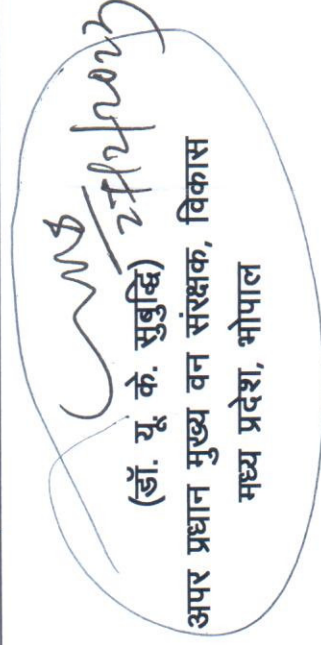 27/2/2023
(डॉ. यू. के. सुबुद्धि)
अपर प्रधान मुख्य वन संरक्षक, विकास
मध्य प्रदेश, भोपाल